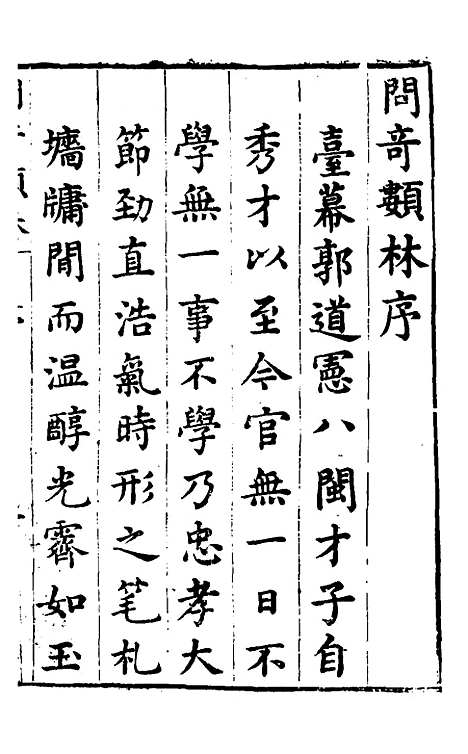 問竒類林序
臺幕郭道憲八閩才子自
秀才以至今官無一日不
學無一事不學乃忠孝大
節勁直浩氣時形之笔札
墻牗間而温醇光霽如玉